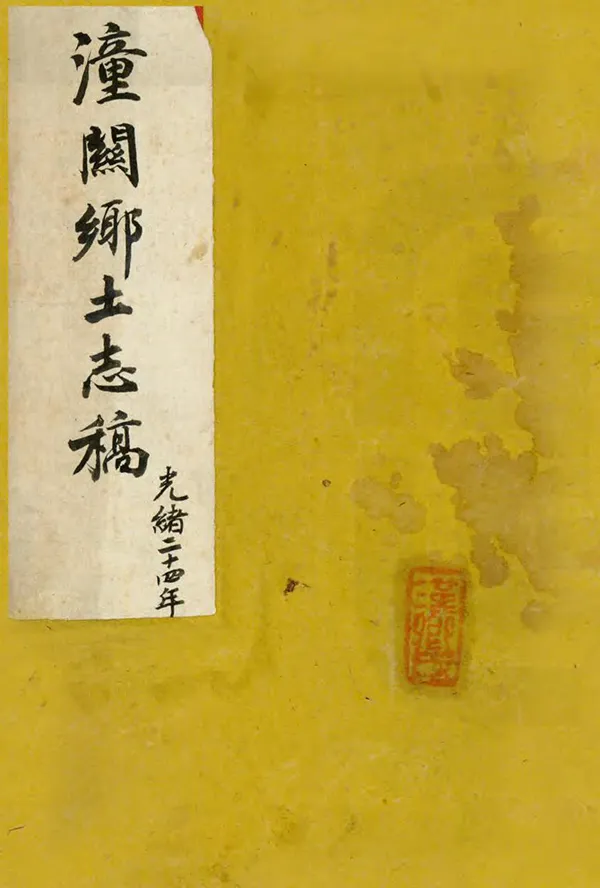 潼關鄉土志稿
光緒二十四年